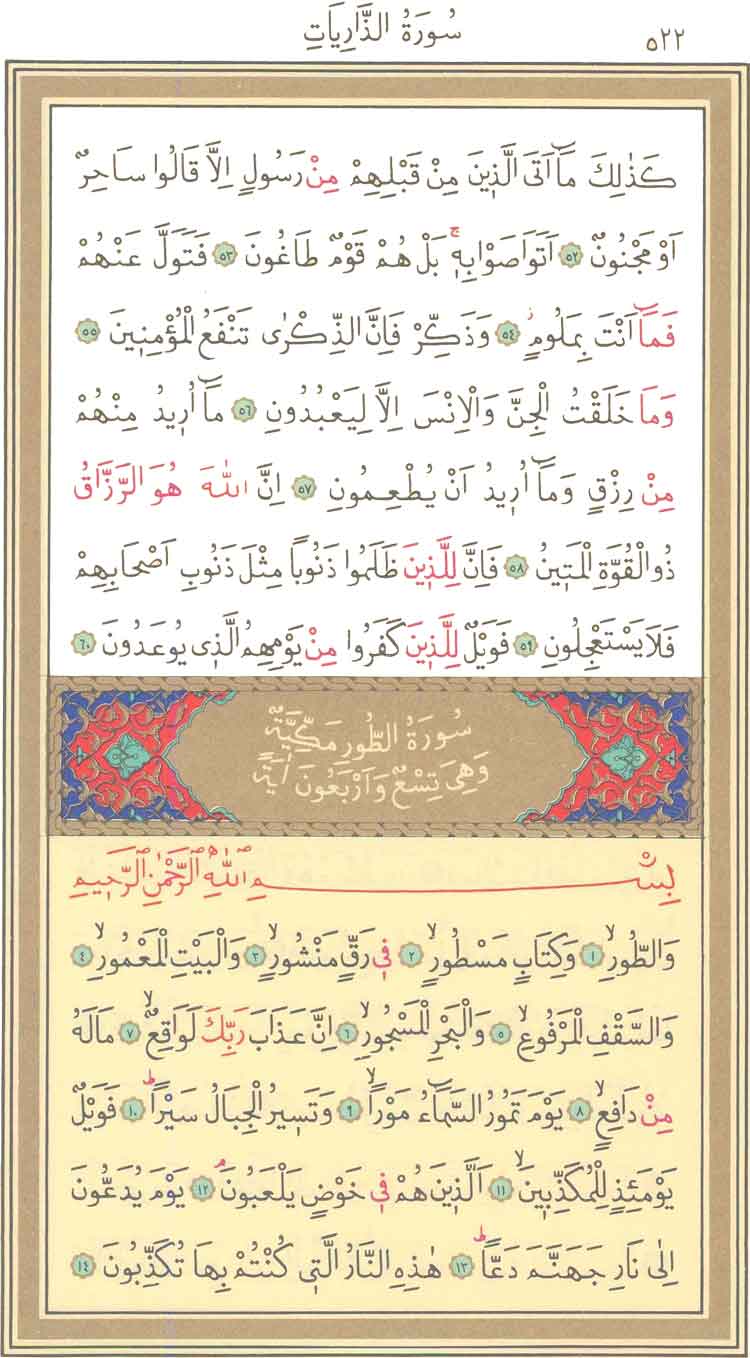 ٥٢٢
سُورَةُ الذَّارِيَاتِ
كَذٰلِكَ مَٓا اَتَى الَّذ۪ينَ مِنْ قَبْلِهِمْ مِنْ رَسُولٍ اِلَّا قَالُوا سَاحِرٌ
اَوْ مَجْنُونٌ ﴿٥٢﴾ اَتَوَاصَوْا بِه۪ۚ بَلْ هُمْ قَوْمٌ طَاغُونَ ﴿٥٣﴾ فَتَوَلَّ عَنْهُمْ
فَمَٓا اَنْتَ بِمَلُومٍۘ ﴿٥٤﴾ وَذَكِّرْ فَاِنَّ الذِّكْرٰى تَنْفَعُ الْمُؤْمِن۪ينَ ﴿٥٥﴾
وَمَا خَلَقْتُ الْجِنَّ وَالْاِنْسَ اِلَّا لِيَعْبُدُونِ ﴿٥٦﴾ مَٓا اُر۪يدُ مِنْهُمْ
مِنْ رِزْقٍ وَمَٓا اُر۪يدُ اَنْ يُطْعِمُونِ ﴿٥٧﴾ اِنَّ اللّٰهَ هُوَ الرَّزَّاقُ
ذُو الْقُوَّةِ الْمَت۪ينُ ﴿٥٨﴾ فَاِنَّ لِلَّذ۪ينَ ظَلَمُوا ذَنُوباً مِثْلَ ذَنُوبِ اَصْحَابِهِمْ
فَلَا يَسْتَعْجِلُونِ ﴿٥٩﴾ فَوَيْلٌ لِلَّذ۪ينَ كَفَرُوا مِنْ يَوْمِهِمُ الَّذ۪ي يُوعَدُونَ ﴿٦٠﴾
سُورَةُ الطُّورِ مَكِّيَّةٌ
وَهِيَ تِسْعٌ وَاَرْبَعُونَ اٰيَةً
بِسْمِ اللّٰهِ الرَّحْمٰنِ الرَّح۪يمِ
وَالطُّورِۙ ﴿١﴾ وَكِتَابٍ مَسْطُورٍۙ ﴿٢﴾ ف۪ي رَقٍّ مَنْشُورٍۙ ﴿٣﴾ وَالْبَيْتِ الْمَعْمُورِۙ ﴿٤﴾
وَالسَّقْفِ الْمَرْفُوعِۙ ﴿٥﴾ وَالْبَحْرِ الْمَسْجُورِۙ ﴿٦﴾ اِنَّ عَذَابَ رَبِّكَ لَوَاقِعٌۙ ﴿٧﴾ مَا لَهُ
مِنْ دَافِعٍۙ ﴿٨﴾ يَوْمَ تَمُورُ السَّمَٓاءُ مَوْراًۙ ﴿٩﴾ وَتَس۪يرُ الْجِبَالُ سَيْراًۜ ﴿١٠﴾ فَوَيْلٌ
يَوْمَئِذٍ لِلْمُكَذِّب۪ينَۙ ﴿١١﴾ اَلَّذ۪ينَ هُمْ ف۪ي خَوْضٍ يَلْعَبُونَۢ ﴿١٢﴾ يَوْمَ يُدَعُّونَ
اِلٰى نَارِ جَهَنَّمَ دَعاًّۜ ﴿١٣﴾ هٰذِهِ النَّارُ الَّت۪ي كُنْتُمْ بِهَا تُكَذِّبُونَ ﴿١٤﴾